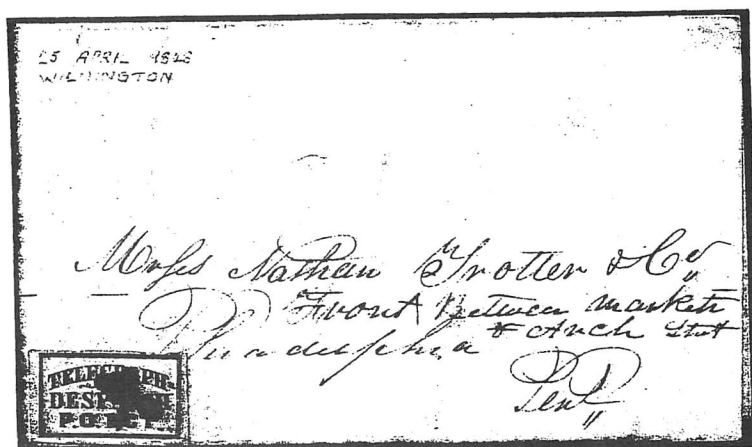 25 APRIL
WILMINGTON
Messs Nathan Trotter & Co
Front Between market
& Arch Stret
Philadelphia
Pen
TELEGRAPH
P.O.